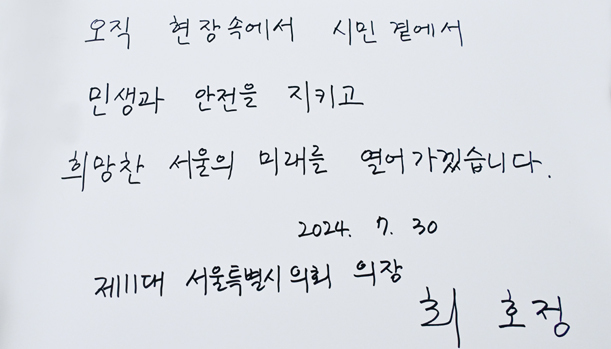 오직 현장속에서 시민 곁에서
민생과 안전을 지키고
희망찬 서울의 미래를 열어가겠습니다.
2024. 7. 30
제11대 서울특별시의회 의장
최 호정